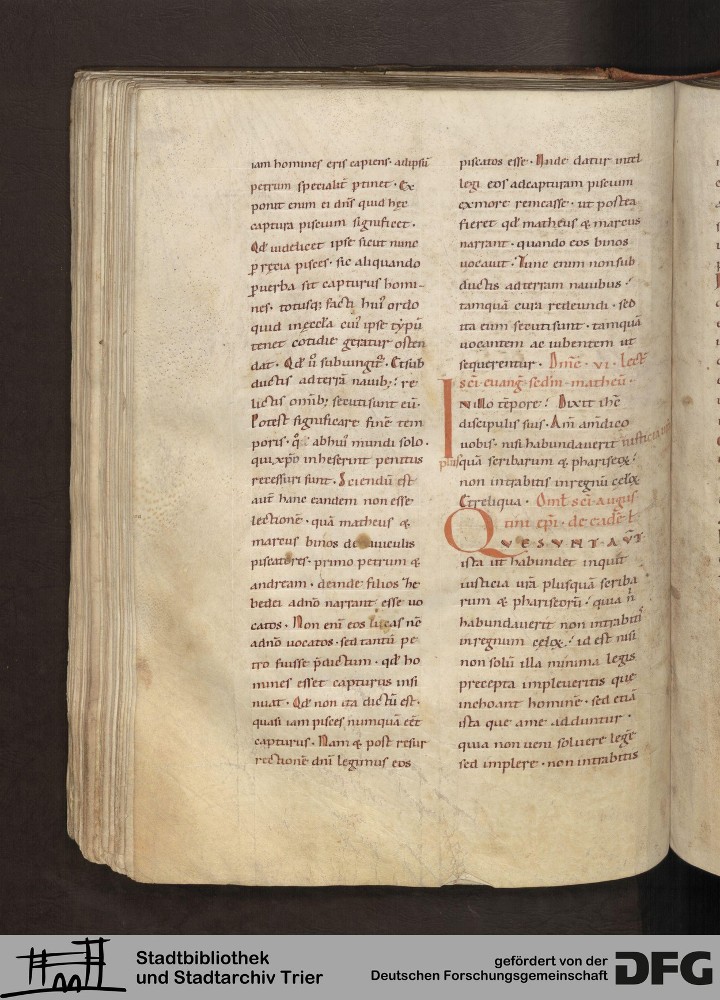 iam homines eris capiens. ad ipsū
petrum specialit̄ ptinet. Ex
ponit enim ei dn̄s quid hęc
captura piscium significet.
Qd̄ uidelicet ipse sicut nunc
p retia pisces. sic aliquando
p uerba sit capturus homi-
nes. totusq; facti hui' ordo
quid in ęccl̄a cui' ipse typū
tenet cotidie geratur osten
dat. Qd̄ ū subiungit᷑. Et sub
ductis ad terrā nauib; re
lictis omīb; secuti sunt eū.
Potest significare finē tem
poris. q° ab hui' mundi solo.
qui xp̄o inheserint penitus
recessuri sunt. Sciendū est
aut̄ hanc eandem non esse
lectionē. quā matheus &
marcus binos de nauiculis
piscatores. primo petrum &
andream. deinde filios he
bedei a dn̄o narrant esse uo
catos. Non enī eos lucas nc̄
a dn̄o uocatos. sed tantū pe
tro fuisse p̄dictum. qd̄ ho
mines esset capturus insi
nuat. Qd̄ non ita dictū est.
quasi iam pisces numquā eēt
capturus. Nam & post resur
rectionē dn̄i legimus eos
piscatos esse. Unde datur intel
legi eos ad capturam piscium
ex more remeasse. ut postea
fieret qd̄ matheus & marcus
narrant. quando eos binos
uocauit. Tunc enim non sub
ductis ad terram nauibus.
tamquā cura redeundi. sed
ita eum secuti sunt. tamquā
uocantem ac iubentem ut
sequerentur. Dm̄c. VI. Lect̄
sc̄i euanḡ. sedm̄. matheū.
IN illo tēpore. Dixit ihc̄
discipulis suis. Am̄ am̄ dico
uobis. nisi habundauerit iusticia
plusquā scribarum & phariseoꝝ.
non intrabitis in regnū celoꝝ
Et reliqua. Oml̄ sc̄i augus
tini ep̄i. de eadē l.
QVE SVNT AVT̄
ista ut habundet inquit
iusticia ur̄a plusquā scriba
rum & phariseorū. quia n̄
habundauerit non intrabit̄
in regnum celoꝝ. id est nisi
non solū illa minima legis
precepta impleueritis que
inchoant hominē. sed etiā
ista que a me adduntur.
quia non ueni soluere legē
sed implere. non intrabitis
Stadtbibliothek
und Stadtarchiv Trier
gefördert von der
Deutschen Forschungsgemeinschaft
DFG